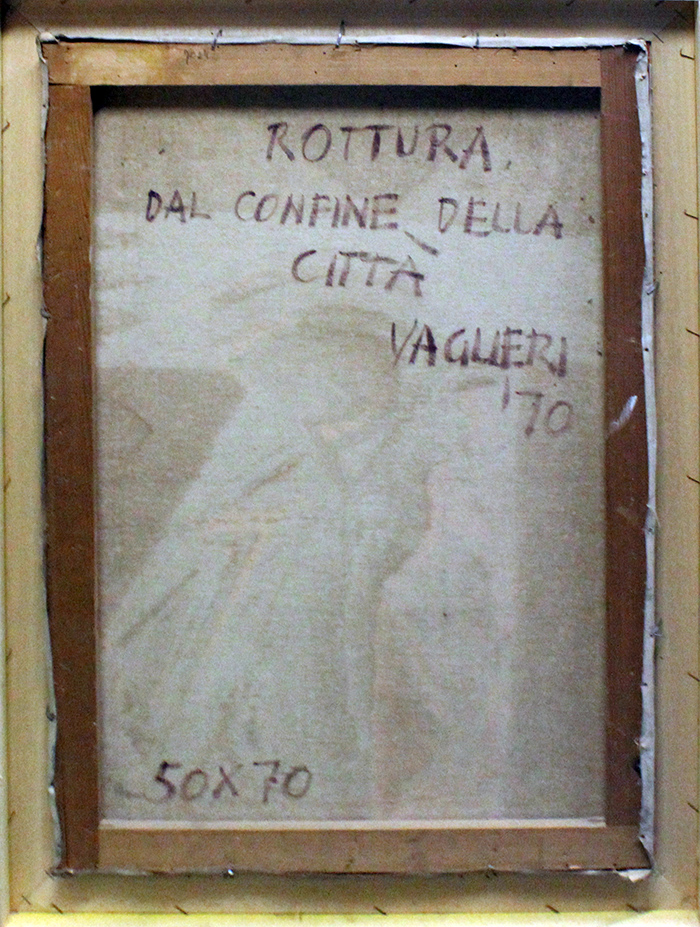 ROTTURA
DAL CONFINE DELLA
CITTÀ
VAGLIERI
'70
50X70